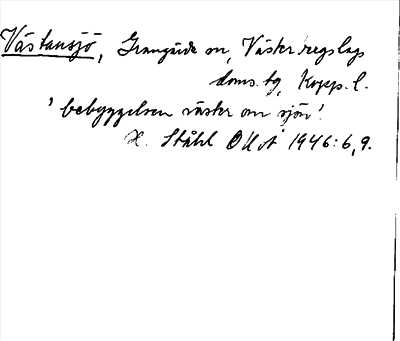 Västansjö, Grangärde sn, Västerbergslags
doms.tg, Kopp. l.
'bebyggelsen väster om sjön'.
H. Ståhl OUÅ 1946:6,9.